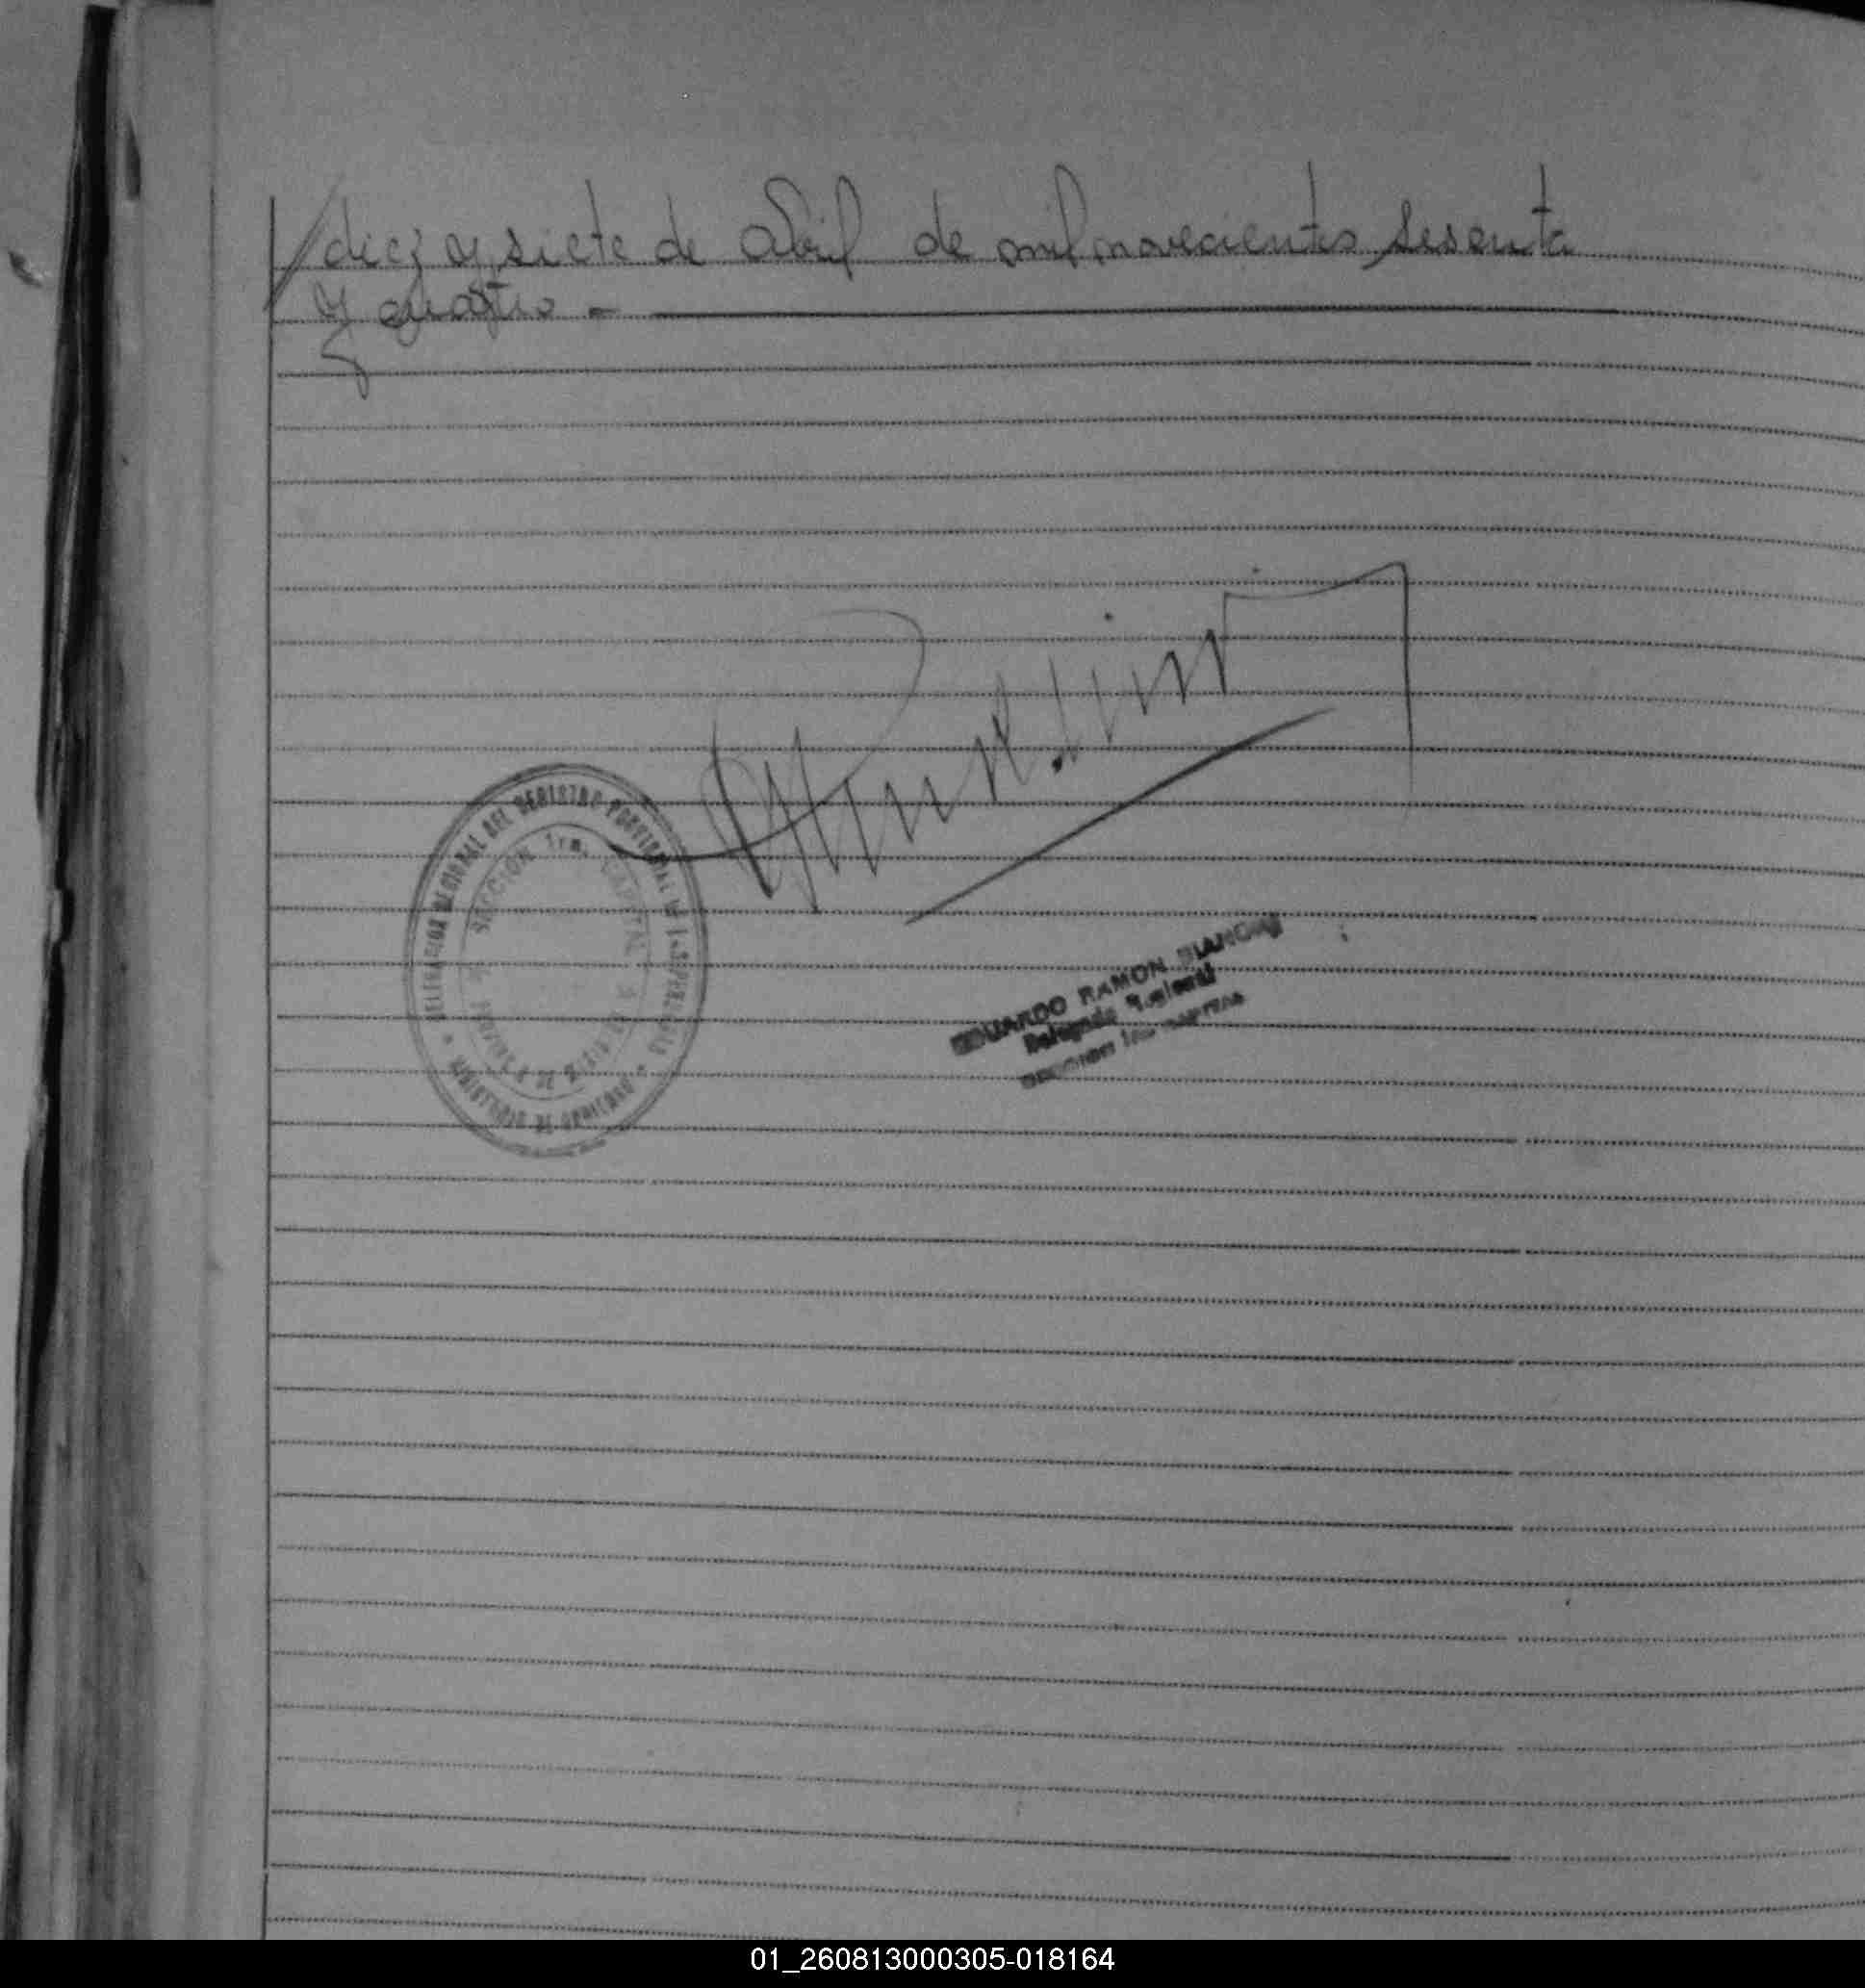 diez y siete de abril de mil novecientos sesenta
y cuatro -
DELEGACION REGIONAL DEL REGISTRO PROVINCIAL DE LAS PERSONAS
SECCION 1ra. CAPITAL
EDUARDO RAMON BIANCHI
Delegado Regional
SECCION 1ra CAPITAL
01_260813000305-018164